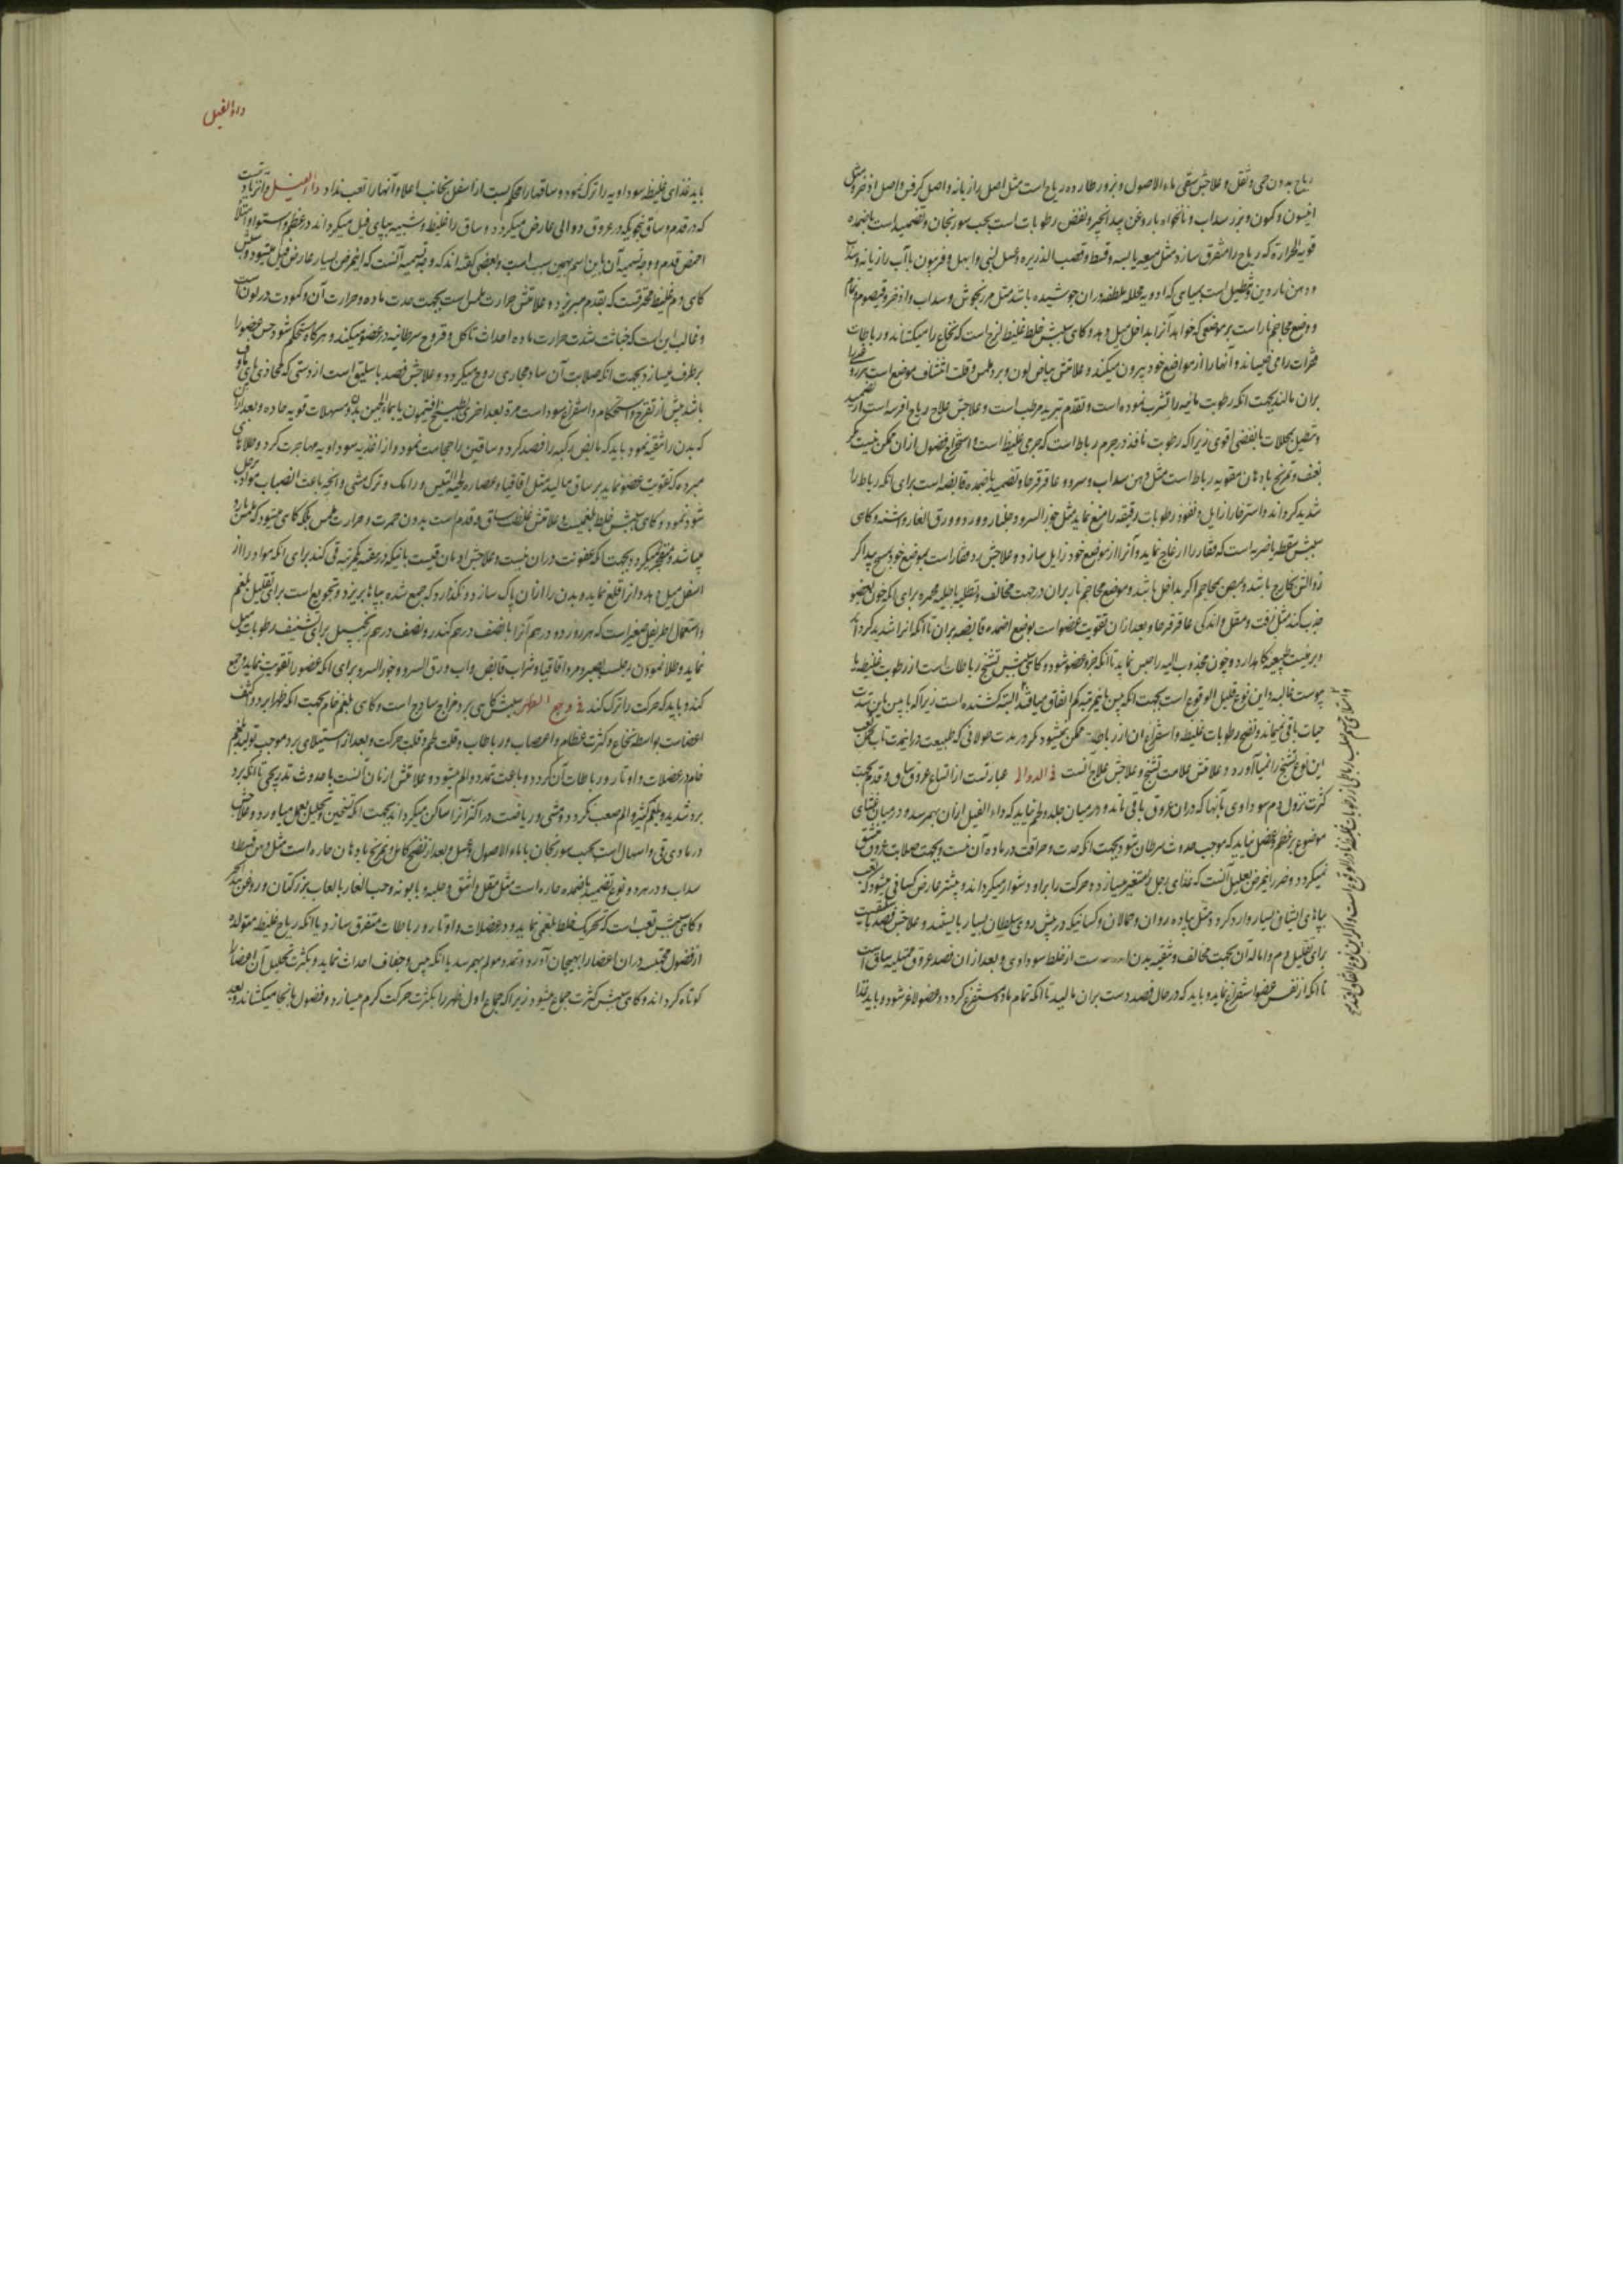 ریاح بدون حمی و ثقل و علاجش سقی ماء الاصول و بزور طارده ریاح است مثل اصل رازیانه و اصل کرفس و اصل اذخر و
انیسون و کمون و بزر سداب و نانخواه با روغن بیدانجیر و نفض رطوبات است بحب سورنجان و تضمید است باضمده
قویه الحرارة که ریاح را متفرق سازد مثل میعه یابسه و قسط و قصب الذریره و عسل لبنی و ابهل و فرفیون بآب رازیانه و سداب
و دهن ناردین و تطلیل است بمیاهی که ادویه محلله ملطفه دران جوشیده باشد مثل مرزنجوش و سداب و اذخر و قیصوم و نمام
و وضع محاجم نار است بر موضعی که خواهد آنرا بداخل میل دهد و گاهی سببش خلط غلیظ لزج است که نخاع را میکشاند و رباطات
فقرات را می خیساند و آنها را از مواضع خود بیرون میکند و علامتش بیاض لون و برد ملمس و قلت انتشاف موضع است
بران مالند بجهت انکه رطوبت مائیه را تشرب نموده است و تقدم تدبیر مرطب است و علاجش علاج ریاح افرسه است از
وتطیل بمحللات با نفضی اقوی زیرا که رطوبت نافذ در جرم رباط است که جرمی غلیظ است و استخراج فضول ازان ممکن نیست مگر
بعنف و تمریخ بادهان مقویه رباط است مثل دهن سداب و سرو و عاقرقرحا و تضمید باضمده قابضه است برای انکه رباط را
شدید گرداند و استرخا را زایل و نفوذ رطوبات رقیقه را منع نماید مثل جوز السرو و جلنار و ورد و ورق الغار و اشنه و گاهی
سببش سقطه یا ضربه است که فقار را ازعاج نماید و آنرا از موضع خود زایل سازد و علاجش رد فقار است بموضع خود بمسح بید اگر
زوالش بخارج باشد و بمص محاجم اگر بداخل باشد و موضع محاجم نار بران در جهت مخالف و تطلیه باطلیه محمره برای انکه خون بعضو
جذب کند مثل زفت و مقل و اندکی عاقرقرحا و بعد ازان تقویت عضو است بوضع اضمده قابضه بران تا انکه انرا شدید گرداند
و بر هیئت طبیعیه نگاهدارد و چون مجذوب الیه را حبس نماید تا انکه جزو عضو شود و گاهی سببش تشنج رباطات است از رطوبت غلیظه یا
یبوست غالبه و این نوع قلیل الوقوع است بجهت انکه یبس باینمرتبه کم اتفاق میافتد البته کشنده است زیرا که با یبس باین شدت
حیات باقی نمیماند و نضج رطوبات غلیظه و استفراغ ان از رباطات ممکن نمیشود مگر در مدت طولانی که طبیعت دراینمدت تاب تعب
این نوع تشنج را نمیآورد و علامتش علامت تشنج و علاجش علاج آنست فی الدوالی عبارتست از اتساع عروق ساق و قدم بجهت
کثرت نزول دم سوداوی بآنها که دران عروق باقی ماند و در میان جلد و لحم نیاید که داء الفیل ازان بهم رسد و در میان
موضوع بر عظم و عضل نیاید که موجب حدوث سرطان شود بجهت انکه حدت و حرافت در ماده آن نیست و بجهت صلابت عروق منشق
نمیگردد و ضرر اینمرض بعلیل آنست که غذای رجل را متغیر میسازد و حرکت را براو دشوار میگرداند و بیشتر عارض کسانی میشود که تعب
بپاهای ایشان بسیار وارد گردد مثل پیاده روان و حمالان و کسانیکه در پیش روی سلطان بسیار بایستند و علاجش فصد باسلیق است
برای تقلیل دم و اماله آن بجهت مخالف و تنقیه بدن است از خلط سوداوی و بعد ازان فصد عروق ممتلیه ساق است
تا انکه از نفس عضو استفراغ نماید و باید که در حال فصد دست بران مالید تا انکه تمام ماده مستفرغ گردد و عضو لاغر شود و باید غذا
داء الفیل
باید غذای غلیظه سوداویه را ترک نمود و ساقها را محکم بست از اسفل بجانب اعلا و آنها را تعب نداد داء الفیل و آن زیادتیست
که در قدم و ساق بنحویکه در عروق دوالی عارض میگردد و ساق را غلیظ و شبیه بپای فیل میگرداند در عظم و استوا و
اخمص قدم و وجه تسمیه آن باین اسم بهمین سبب است و بعضی گفته اند که وجه تسمیه آنست که اینمرض بسیار عارض فیل میشود و سببش
گاهی دم غلیظ محترقست که بقدم میریزد و علامتش حرارت ملمس است بجهت حدت ماده و حرارت آن و کمودت در لون است
و غالب این است که خباثت شدت حرارت ماده احداث تاکل و قروح سرطانیه در عضو میکند و هرگاه مستحکم شود حس عضو را
برطرف میسازد بجهت انکه صلابت آن ساد مجاری روح میگردد و علاجش فصد باسلیق است از دستی که محاذی پای ماوف
باشد پیش از تقرح و استحکام و استفراغ سودا است مرة بعد اخری بطبیخ افتیمون یا بماء الجبن و مسهلات قویه حاده و بعد ازان
که بدن را تنقیه نمود باید که مابض رکبه را فصد کرد و ساقین را حجامت نمود و از اغذیه سوداویه مهاجرت کرد و طلاهای
مبرده که تقویت عضو نماید بر ساق مالید مثل اقاقیا و عصاره لحیة التیس و رامک و ترک مشی و آنچه باعث انصباب مواد برجل
شود نمود و گاهی سببش خلط بلغمیست و علامتش غلظ ساق و قدم است بدون حمرت و حرارت ملمس بلکه گاهی میشود که ملمس بارد
میباشد و متقرح نمیگردد بجهت انکه عفونت دران نیست و علاجش ادمان قیست بانیکه در هفته یکمرتبه قی کند برای انکه مواد را از
اسفل میل دهد و ازانجا قلع نماید و بدن را ازان پاک سازد و نگذارد که جمع شده بپاها بریزد و تجویع است برای تقلیل بلغم
و استعمال اطریفل صغیر است که هر روز دو درهم آنرا با نصف درهم کندر و نصف درهم زنجبیل برای تنشیف رطوبات میل
نماید و طلا نمودن رجلست بصبر و مر و اقاقیا و شراب قابض و آب ورق السرو و جوز السرو برای انکه عضو را تقویت نماید و جمع
کند و باید که حرکت را ترک کند فی وجع الظهر سببش گاهی برد مزاج ساذج است و گاهی بلغم خام بجهت انکه ظهر ابرد و اکثف
اعضاست بواسطه نخاع و کثرت عظام و اعصاب و رباطات و قلت لحم و قلت حرکت و بعد از استیلای برد موجب تولید بلغم
خام در عضلات و اوتار و رباطات آن گردد و باعث تمدد و الم میشود و علامتش ازمان آنست با حدوث بتدریجی تا انکه برد
برد شدید و بلغم کثیر و الم صعب گردد و مشی و ریاضت در اکثر آنرا ساکن میگرداند بجهت انکه تسخین و تحلیل بعمل میاورد و علاجش
در مادی قی و اسهال است بحب سورنجان با ماء الاصول و عسل و بعد از نضج کامل و تمریخ بادهان حاره است مثل دهن قسط و
سداب و در هر دو نوع تضمید باضمده حاره است مثل مقل و اشق و حلبه و بابونه و حب الغار با لعاب بزر کتان و روغن
و گاهی سببش تعب است که تحریک خلط بلغمی نماید و در عضلات و اوتار و رباطات متفرق سازد یا انکه ریاح غلیظه متولده
از فضول محتبسه دران اعضا را بهیجان آورد و تمدد مولم بهم رسد یا انکه یبس و جفاف احداث نماید و بکثرت تحلیل آن اعضا را
کوتاه گرداند و گاهی سببش کثرت جماع میشود زیرا که جماع اول ظهر را بکثرت حرکت گرم میسازد و فضول بانجا میکشاند و بعد